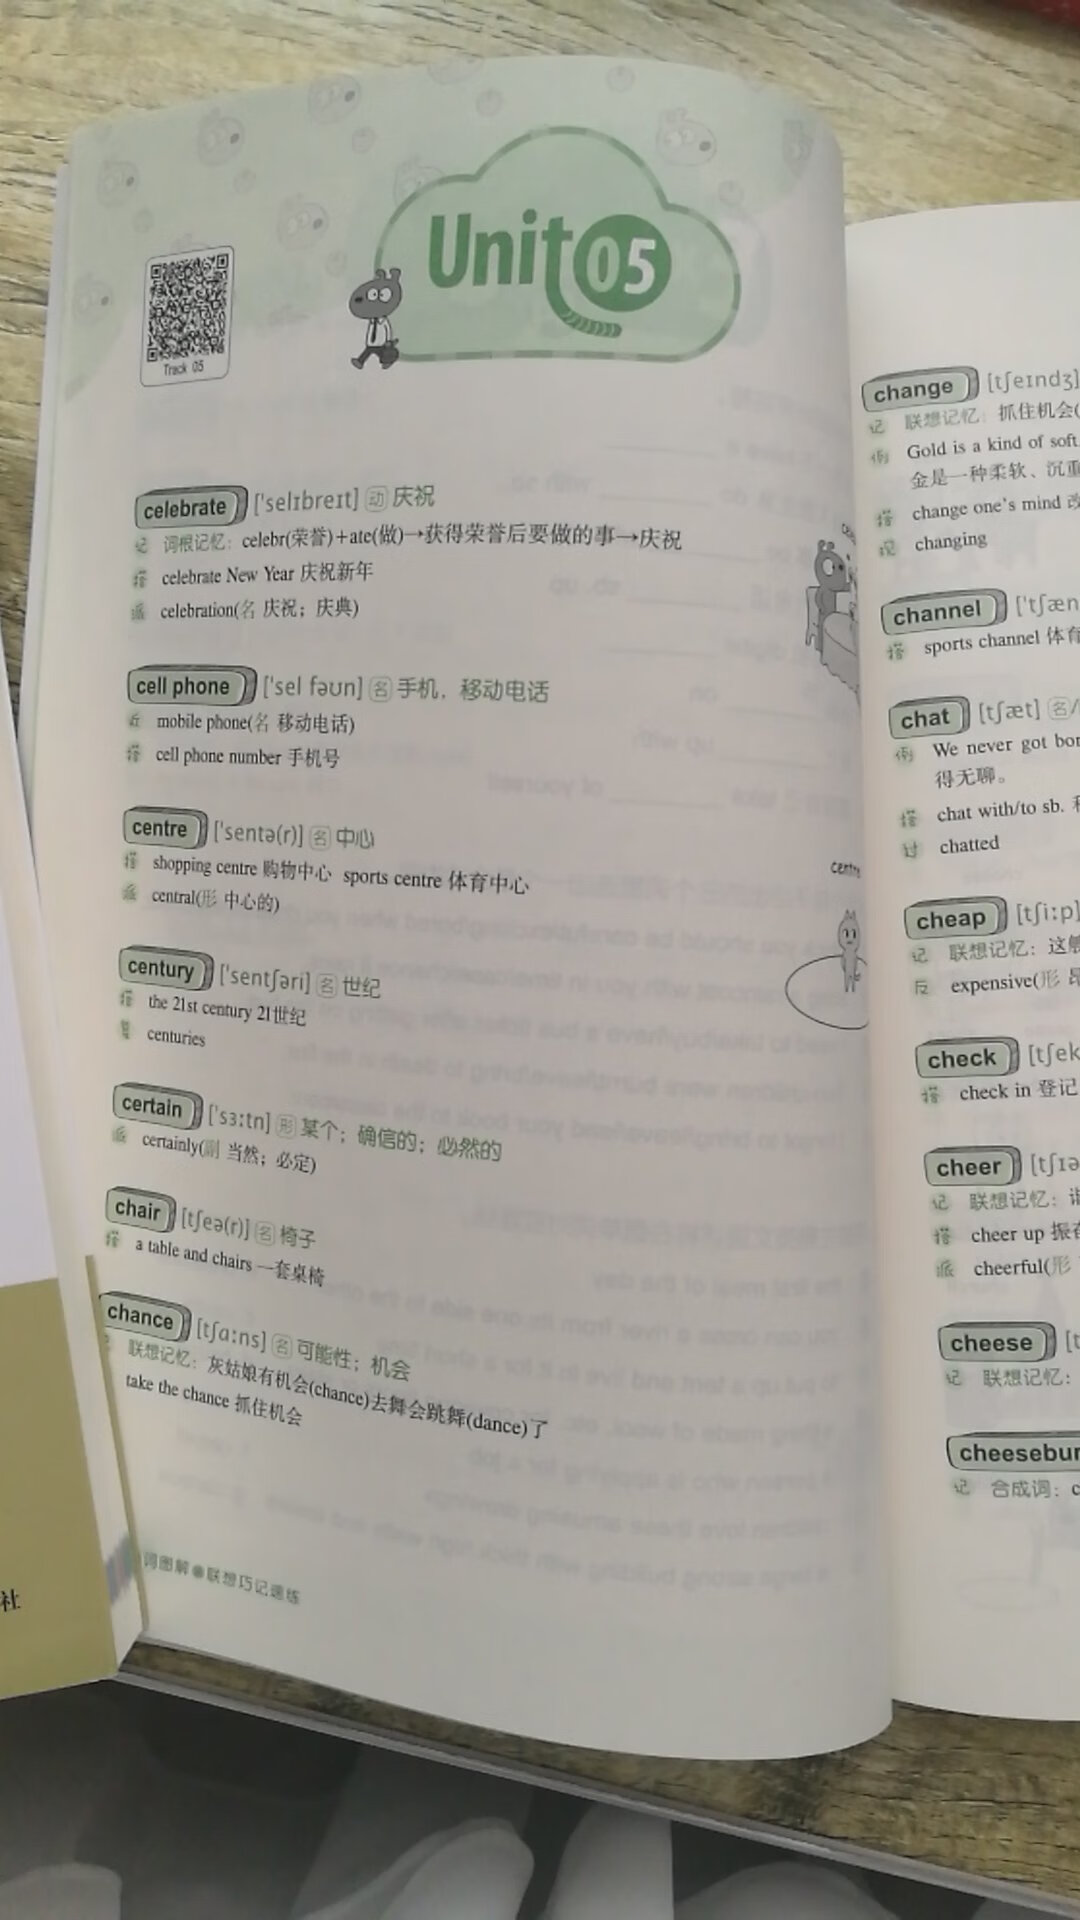 Unit 05
Track 05
celebrate ['selɪbreɪt] 动 庆祝
记 词根记忆：celebr(荣誉)+ate(做)→获得荣誉后要做的事→庆祝
搭 celebrate New Year 庆祝新年
派 celebration(名 庆祝；庆典)
cell phone ['sel fəʊn] 名 手机，移动电话
近 mobile phone(名 移动电话)
搭 cell phone number 手机号
centre ['sentə(r)] 名 中心
搭 shopping centre 购物中心 sports centre 体育中心
派 central(形 中心的)
century ['sentʃəri] 名 世纪
搭 the 21st century 21世纪
复 centuries
certain ['sɜːtn] 形 某个；确信的；必然的
派 certainly(副 当然；必定)
chair [tʃeə(r)] 名 椅子
搭 a table and chairs 一套桌椅
chance [tʃɑːns] 名 可能性；机会
联想记忆：灰姑娘有机会(chance)去舞会跳舞(dance)了
take the chance 抓住机会
词图解 联想巧记速练
centre
社
change [tʃeɪndʒ]
记 联想记忆：抓住机会(
例 Gold is a kind of soft
金是一种柔软、沉重
搭 change one's mind 改
现 changing
channel ['tʃæn
搭 sports channel 体育
chat [tʃæt] 名/
例 We never got bor
得无聊。
搭 chat with/to sb. 和
过 chatted
cheap [tʃiːp]
记 联想记忆：这
反 expensive(形 昂
check [tʃek
搭 check in 登记
cheer [tʃɪə
记 联想记忆：
搭 cheer up 振奋
派 cheerful(形
cheese [t
记 联想记忆：
cheesebur
记 合成词：c